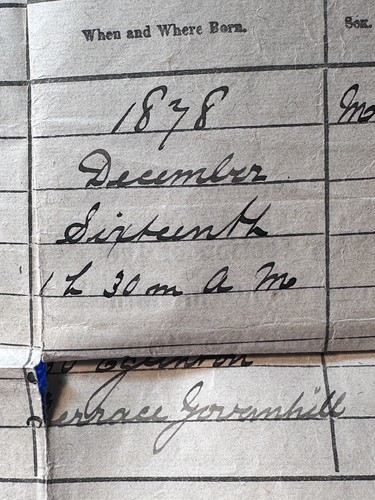 When and Where Born.
Sex.
1878
M
December
Sixteenth
1 h 30 m A M
Terrace Govanhill